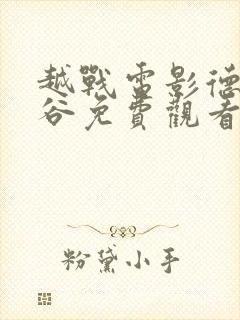 越戰電影德
谷免費觀看
粉黛小手